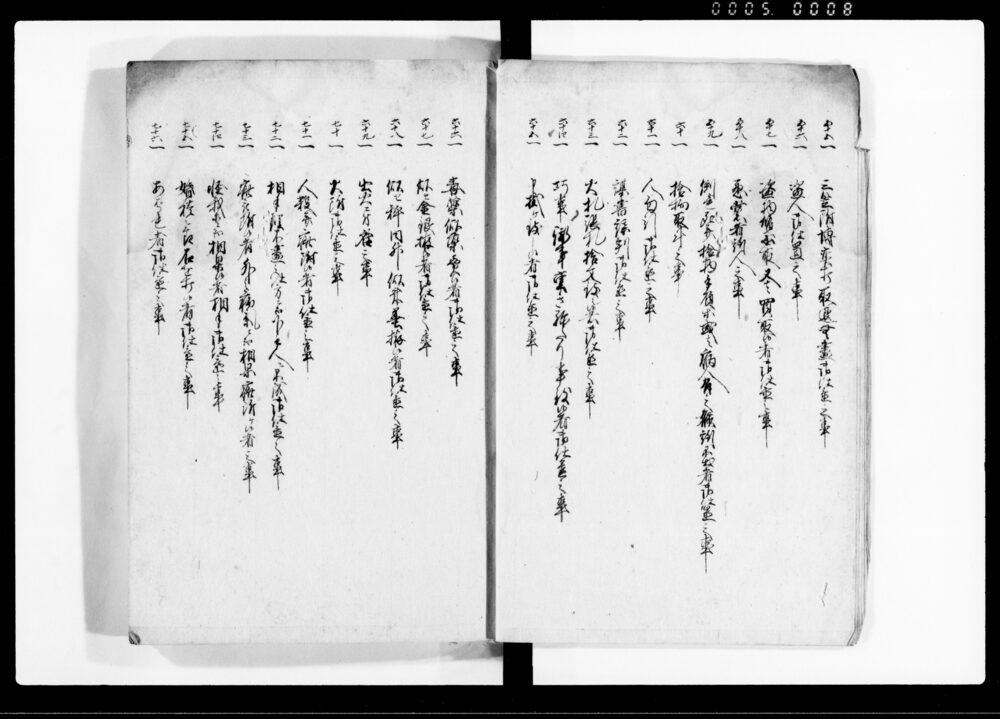 五十五一 三笠附博奕打取退無尽御仕置之事
五十六一 盗人御仕置之事
五十七一 盗物質ニ取又ハ買取候者御仕置之事
五十八一 悪党者訴人之事
五十九一 倒死并捨物手負候或ハ病人有之候を訴不出者御仕置之事
六十一 拾物取斗之事
六十一一 人勾引御仕置之事
六十二一 謀書謀判御仕置之事
六十三一 火札張札捨文致候者御仕置之事
六十四一 巧事謀事重きねたり事致候者御仕置之事
六十五一 申掛ケ致候者御仕置之事
六十六一 毒薬似せ薬売候者御仕置之事
六十七一 似せ金銀拵候者御仕置之事
六十八一 似せ秤同升似せ朱墨拵候者御仕置之事
六十九一 出火ニ付咎之事
七十一 火附御仕置之事
七十一一 人殺并疵附候者御仕置之事
七十二一 相手理不尽之仕方ニ而下手人ニ不成御仕置之事
七十三一 疵被附候者外之病気ニ而相果疵附候者之事
七十四一 怪我ニ而相果候者相手御仕置之事
七十五一 婚礼之節石を打候者御仕置之事
七十六一 あはれ者御仕置之事
0005 0008